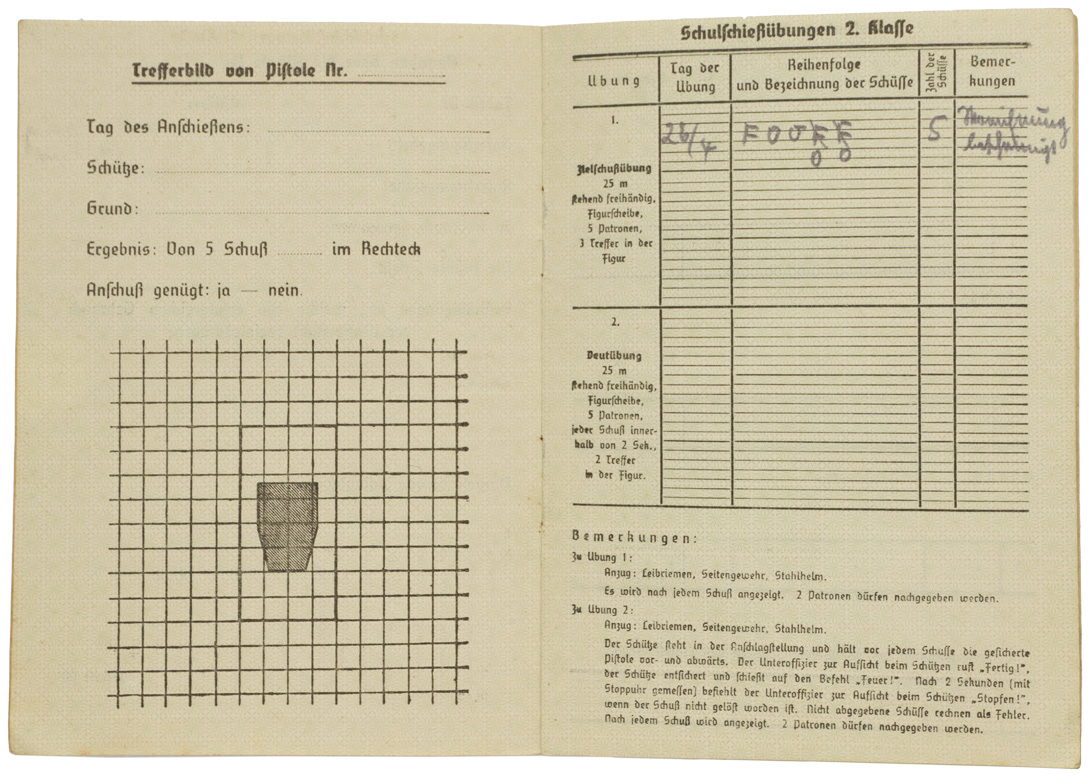 Trefferbild von Pistole Nr.
Tag des Anschießens:
Schütze:
Grund:
Ergebnis: Von 5 Schuß ........ im Rechteck
Anschuß genügt: ja — nein.
Schulschießübungen 2. Klasse
Übung
Tag der
Übung
Reihenfolge
und Bezeichnung der Schüsse
Zahl der
Schüsse
Bemer-
kungen
1.
Zielschußübung
25 m
stehend freihändig,
Figurscheibe,
5 Patronen,
3 Treffer in der
Figur
26/4
F O O F F
O O
5
2.
Deutübung
25 m
stehend freihändig,
Figurscheibe,
5 Patronen,
jeder Schuß inner-
halb von 2 Sek.,
2 Treffer
in der Figur.
Bemerkungen:
Zu Übung 1:
Anzug: Leibriemen, Seitengewehr, Stahlhelm.
Es wird nach jedem Schuß angezeigt. 2 Patronen dürfen nachgegeben werden.
Zu Übung 2:
Anzug: Leibriemen, Seitengewehr, Stahlhelm.
Der Schütze steht in der Anschlagstellung und hält vor jedem Schusse die gesicherte
Pistole vor- und abwärts. Der Unteroffizier zur Aufsicht beim Schützen ruft „Fertig!",
der Schütze entsichert und schießt auf den Befehl „Feuer!". Nach 2 Sekunden (mit
Stoppuhr gemessen) befiehlt der Unteroffizier zur Aufsicht beim Schützen „Stopfen!",
wenn der Schuß nicht gelöst worden ist. Nicht abgegebene Schüsse rechnen als Fehler.
Nach jedem Schuß wird angezeigt. 2 Patronen dürfen nachgegeben werden.